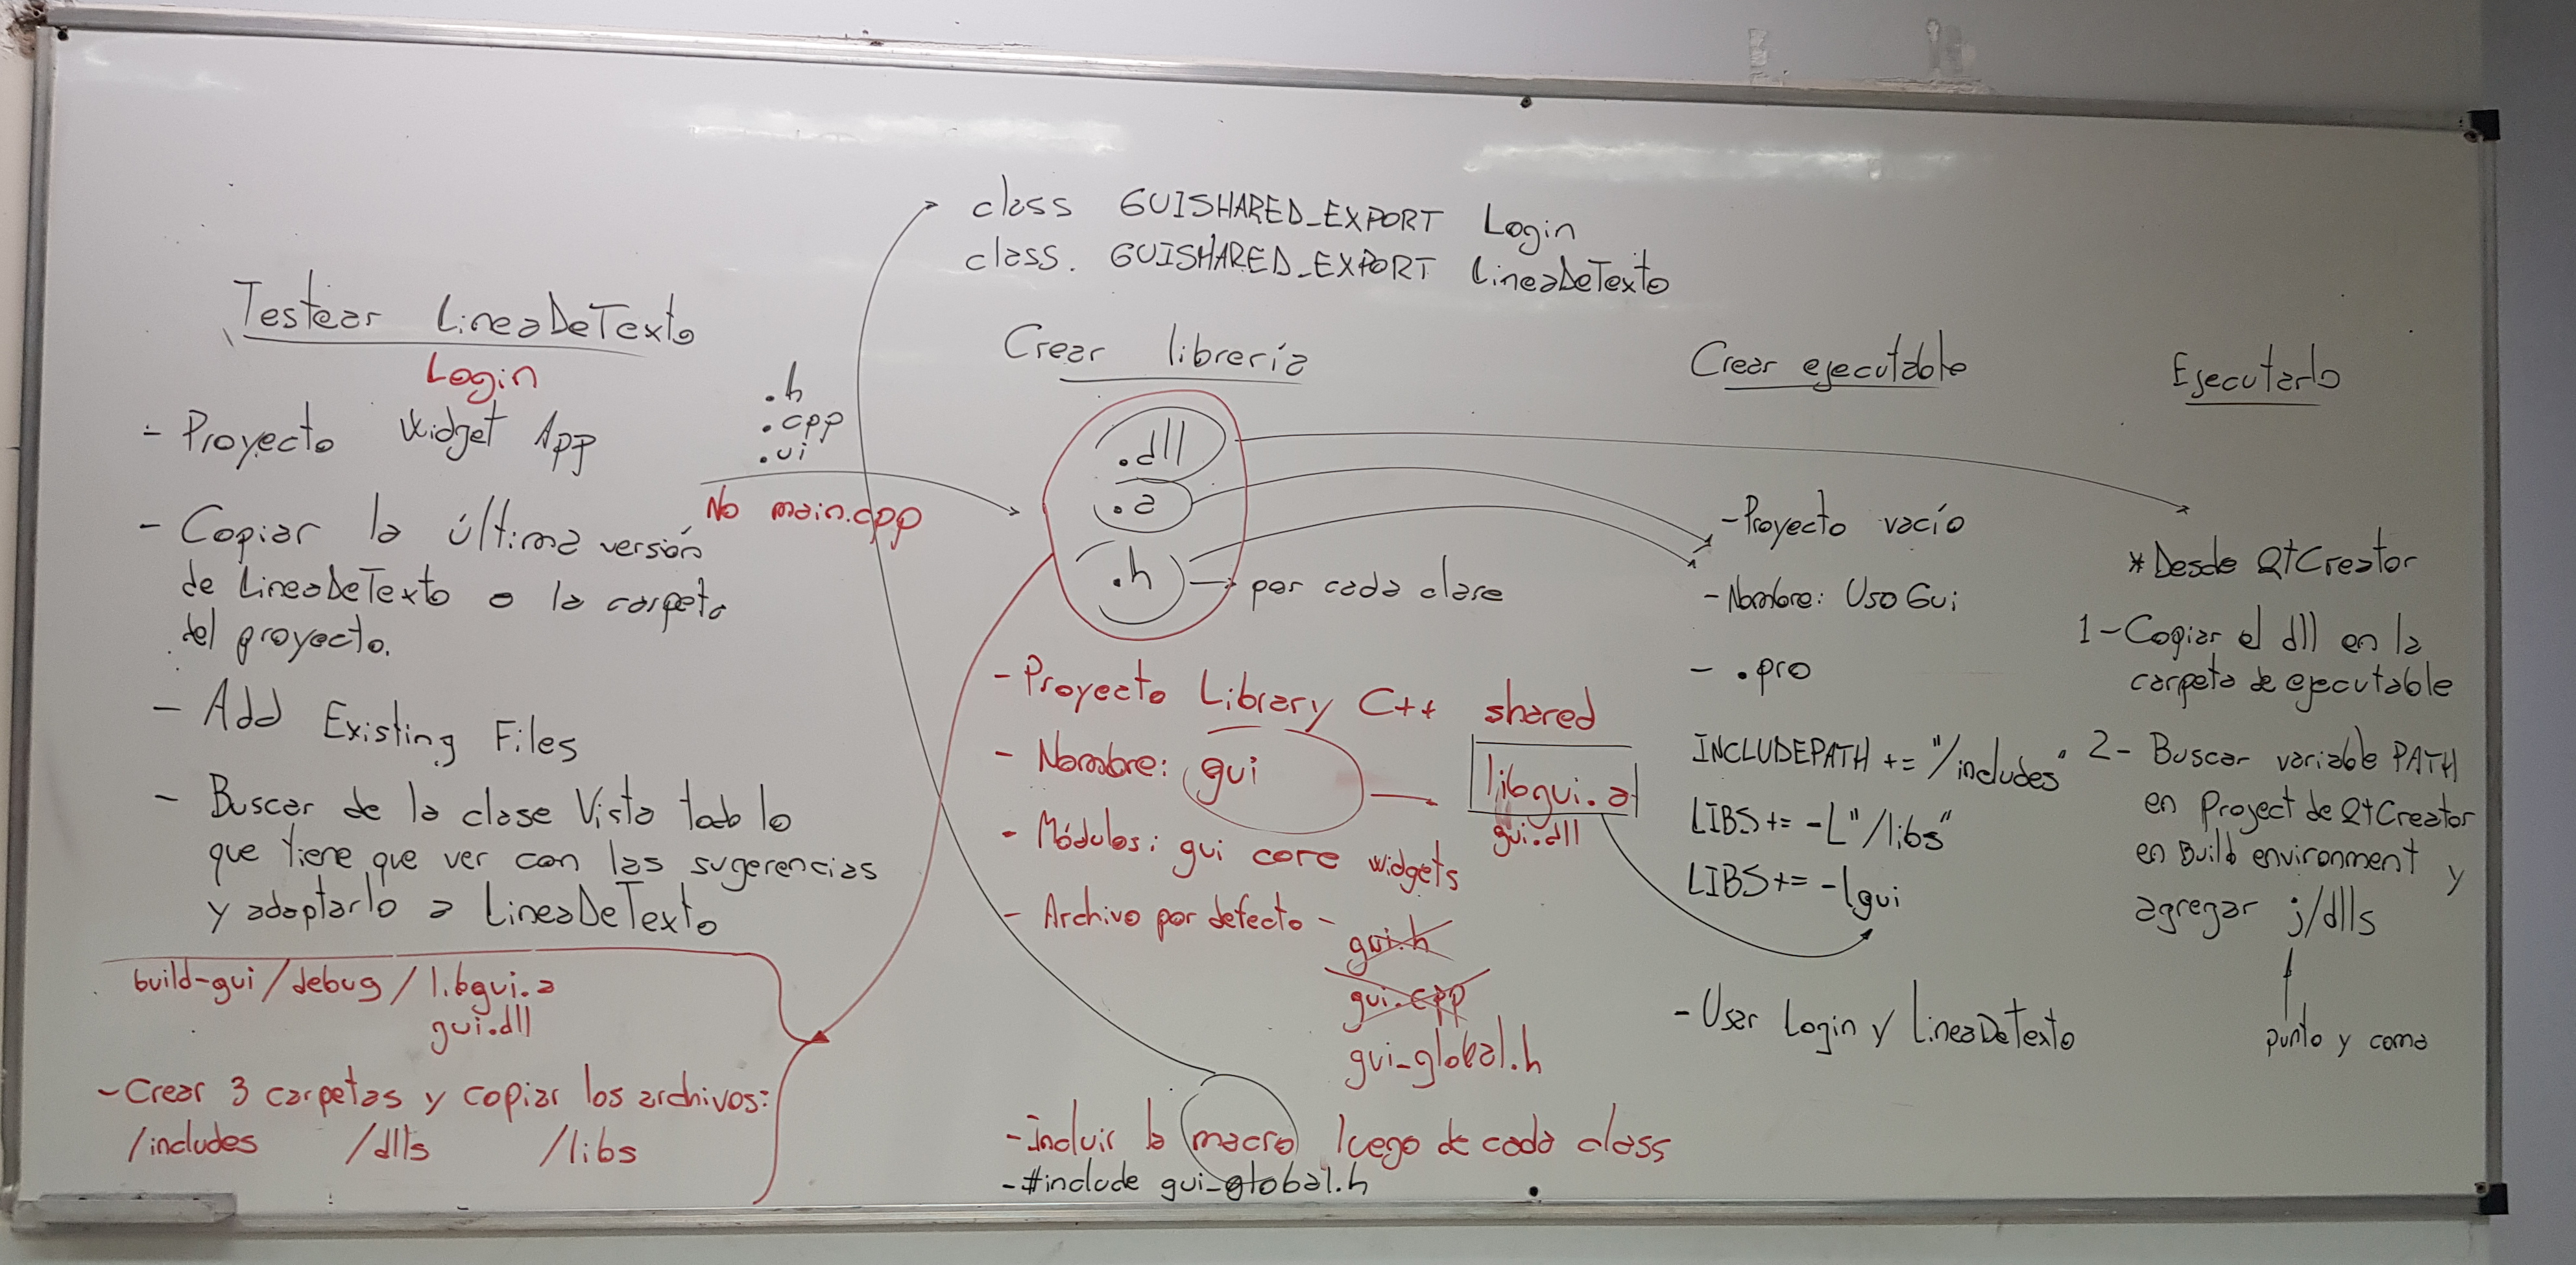 class GUISHARED_EXPORT Login
class. GUISHARED_EXPORT LineaDeTexto
Testear LineaDeTexto
Login
- Proyecto Widget App
- Copiar la última versión
de LineaDeTexto a la carpeta
del proyecto.
- Add Existing Files
- Buscar de la clase Vista todo lo
que tiene que ver con las sugerencias
y adaptarlo a LineaDeTexto
build-gui/debug/libgui.a
gui.dll
- Crear 3 carpetas y copiar los archivos:
/includes /dlls /libs
.h
.cpp
.ui
No main.cpp
Crear librería
.dll
.a
.h → por cada clase
- Proyecto Library C++ shared
- Nombre: gui → libgui.a
gui.dll
- Módulos: gui core widgets
- Archivo por defecto - gui.h
gui.cpp
gui_global.h
- Incluir la macro luego de cada class
- #include gui_global.h
Crear ejecutable
- Proyecto vacío
- Nombre: UsoGui
- .pro
INCLUDEPATH += "/includes"
LIBS += -L"/libs"
LIBS += -lgui
- Usar Login y LineaDeTexto
Ejecutarlo
* Desde QtCreator
1- Copiar el dll en la
carpeta de ejecutable
2- Buscar variable PATH
en Project de QtCreator
en Build environment y
agregar ;/dlls
punto y coma